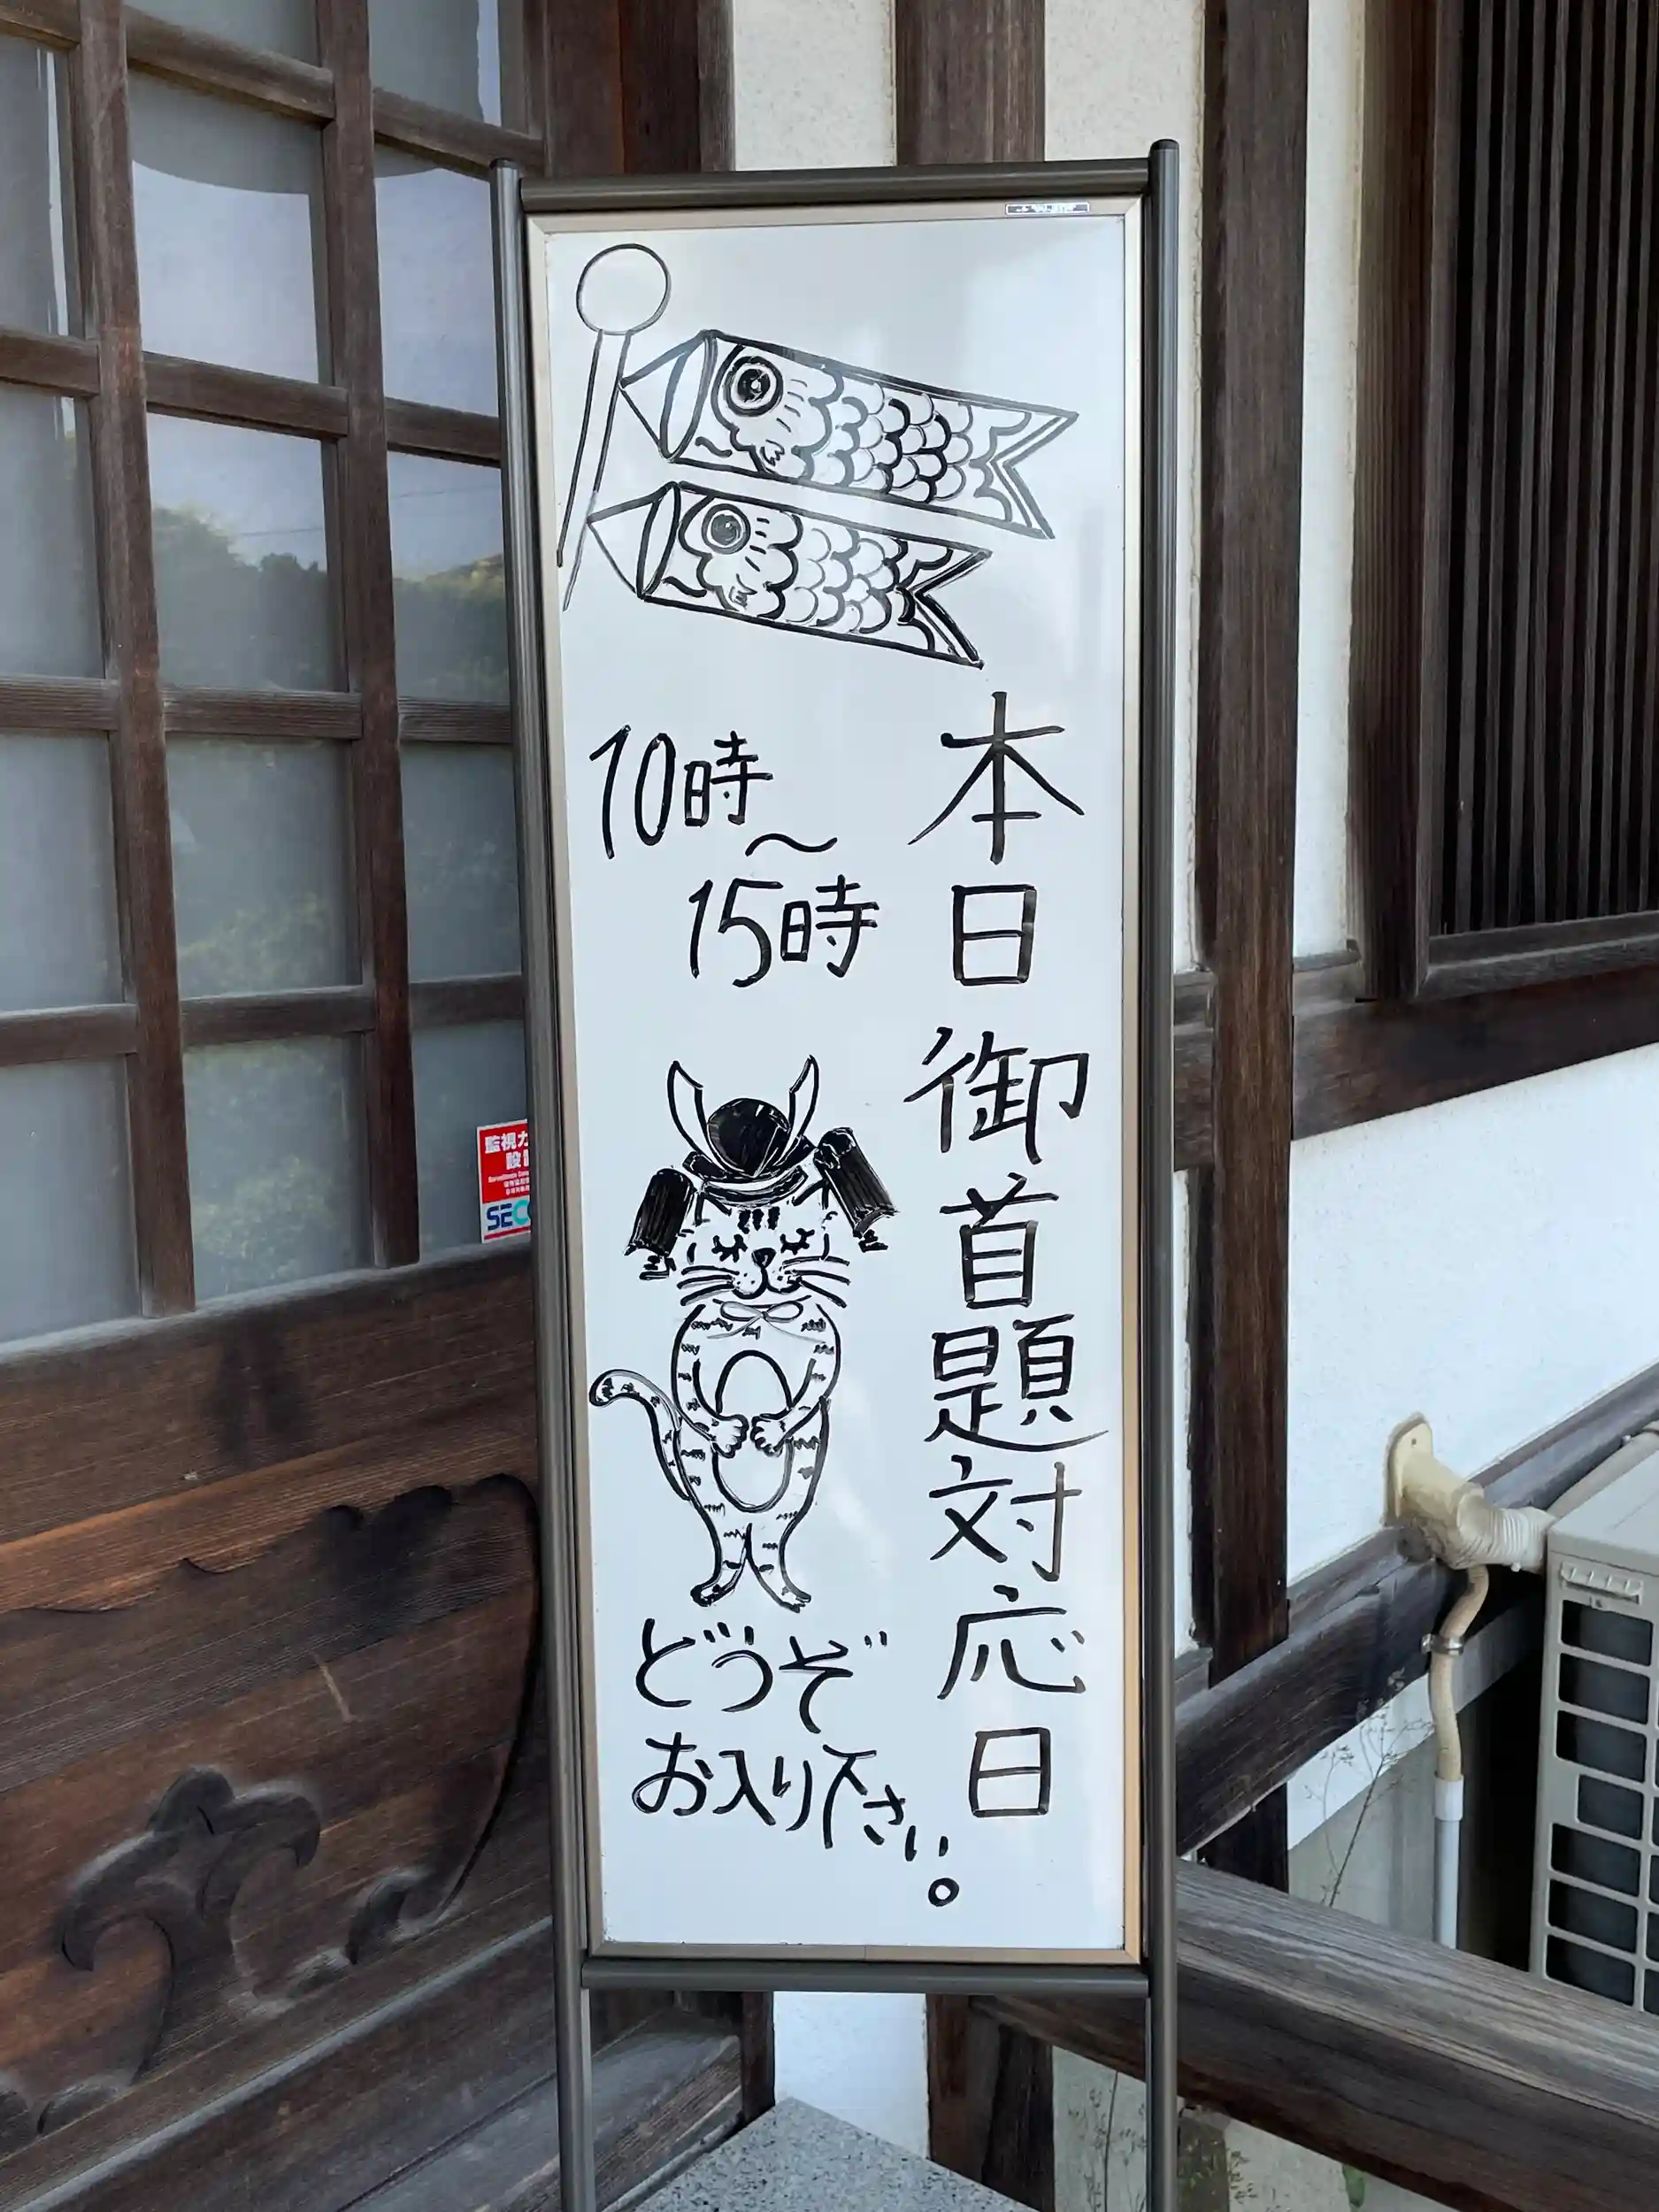 本日御首題対応日
10時
～
15時
どうぞ
お入り下さい。
監視カ
設
SECO